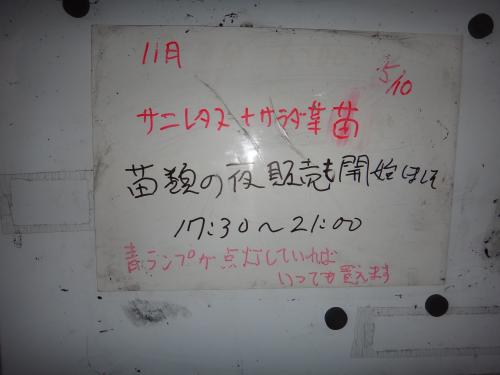 11月
5/10
サニーレタス+サラダ菜苗
苗類の夜販売も開始しまして
17:30〜21:00
青ランプが点灯していれば
いつでも買えます